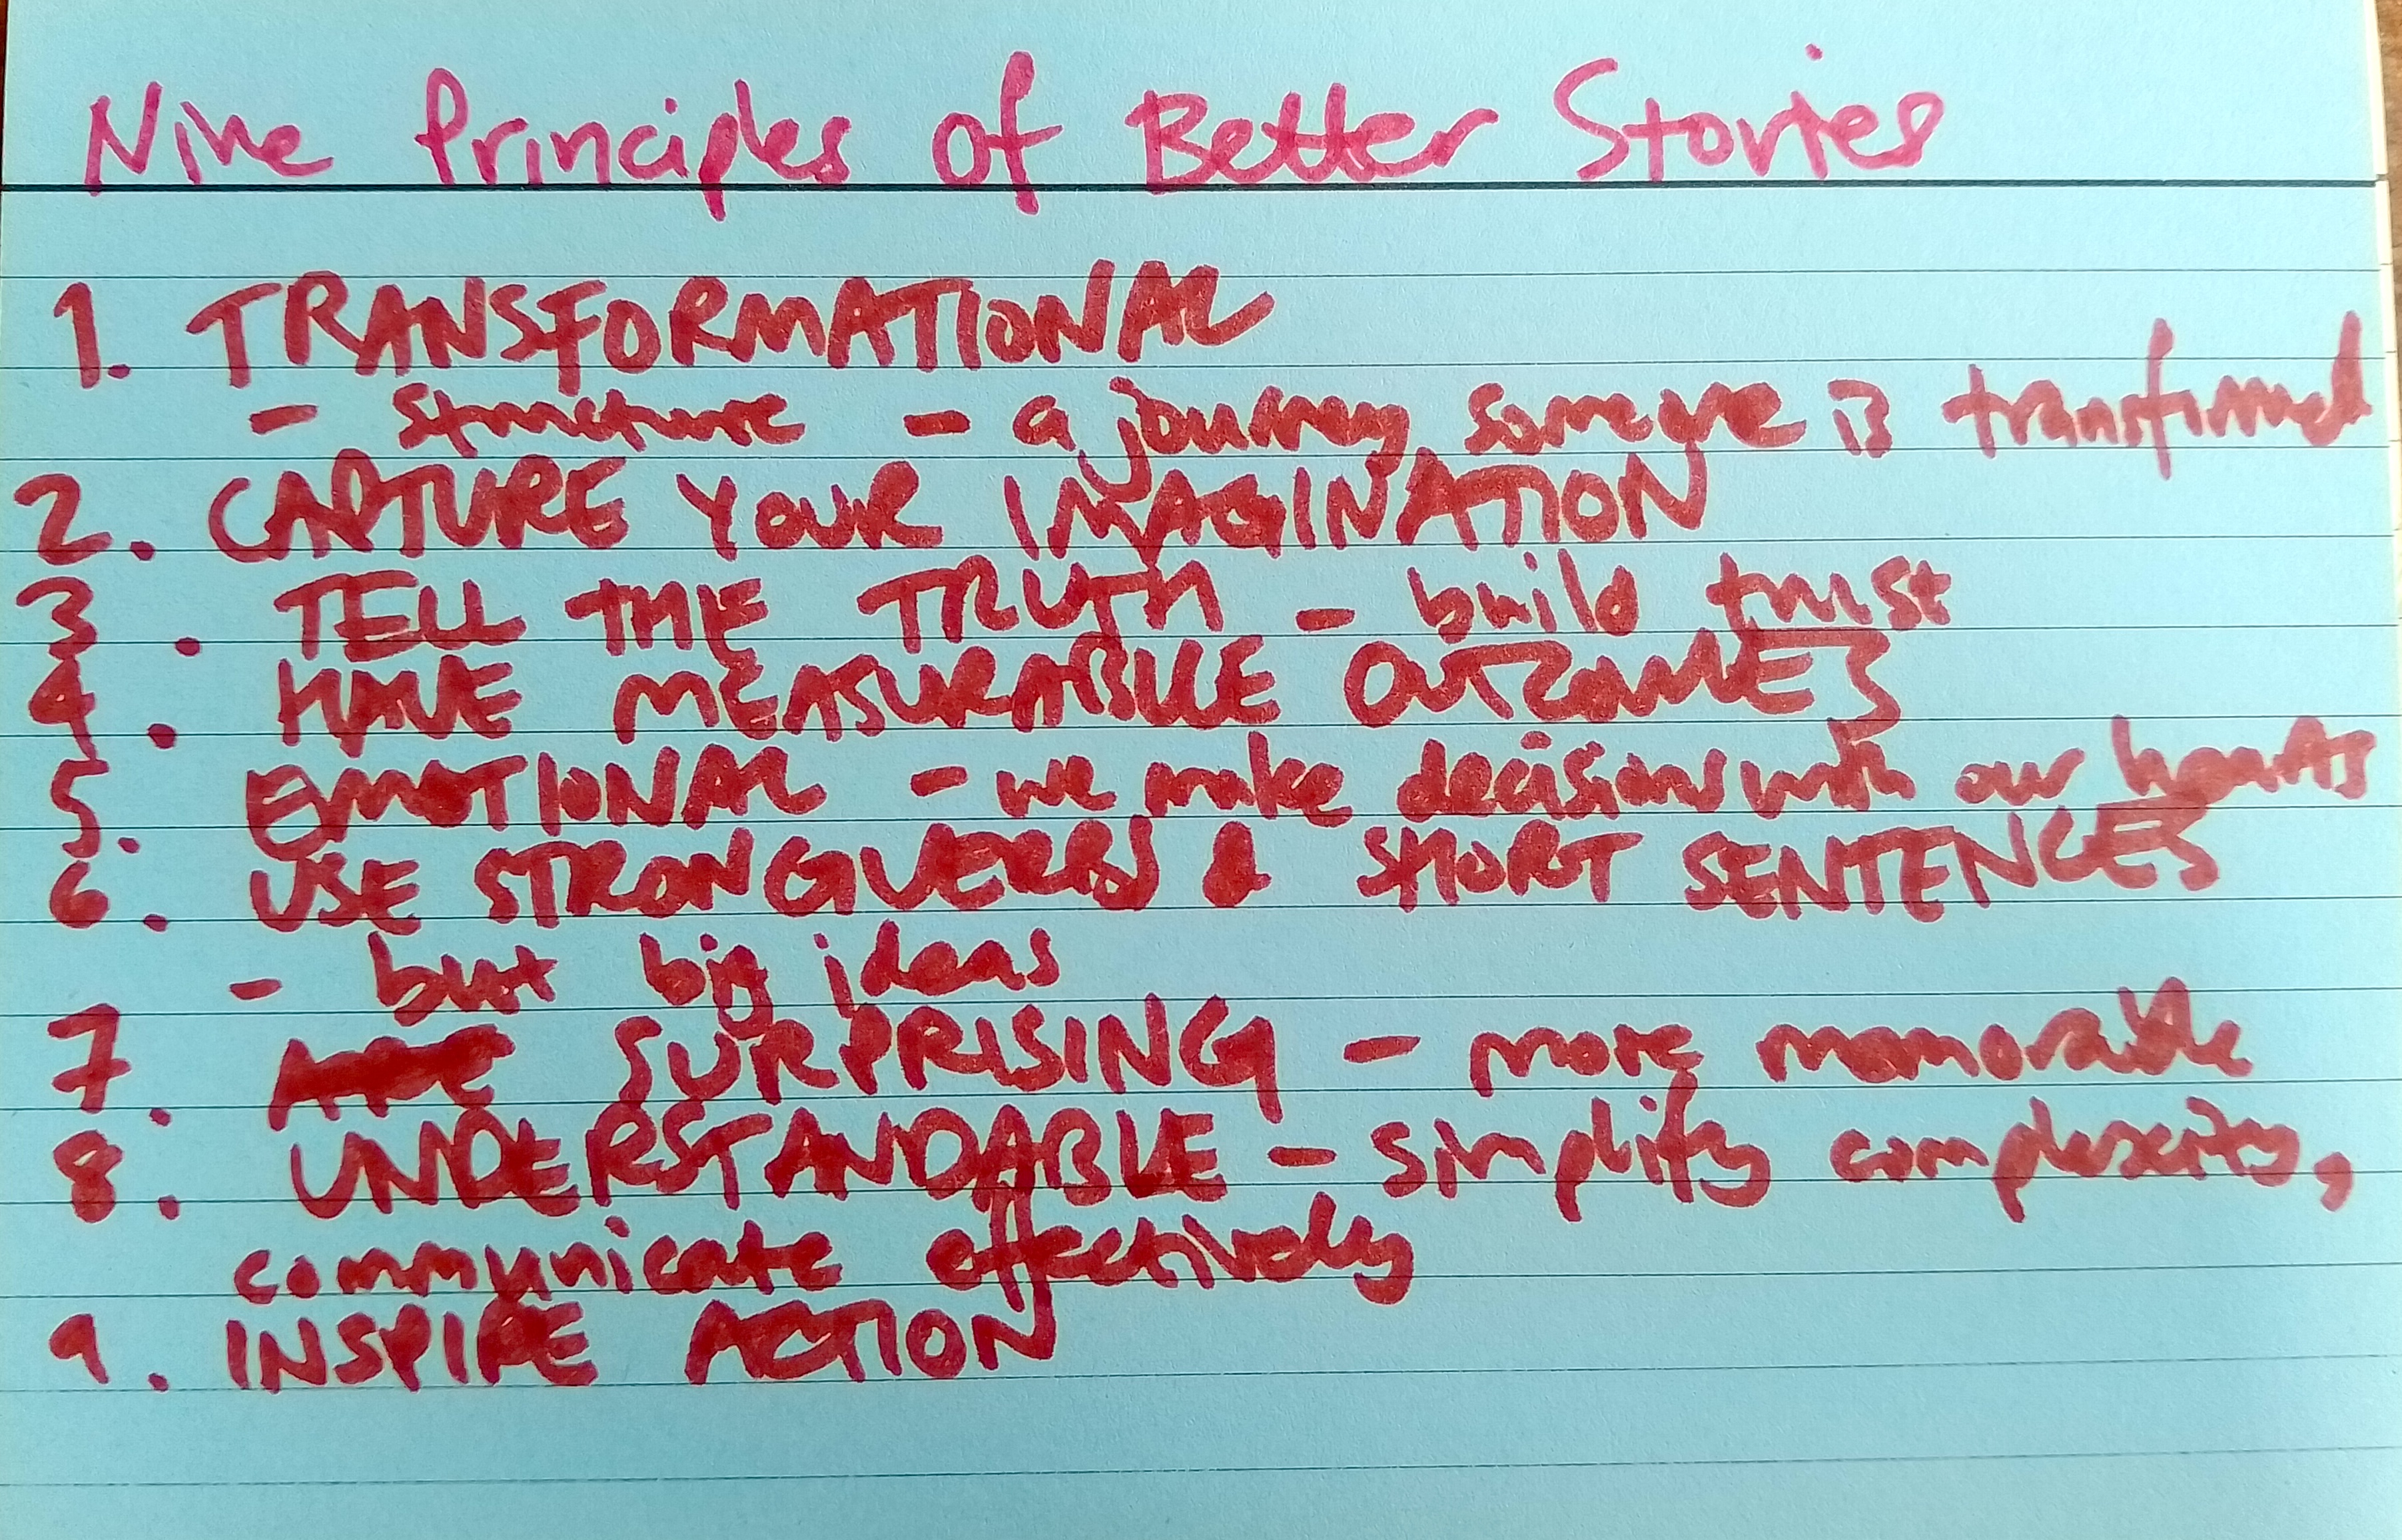 Nine Principles of Better Stories
1. TRANSFORMATIONAL
- structure - a journey someone is transformed
2. CAPTURE YOUR IMAGINATION
3. TELL THE TRUTH - build trust
4. HAVE MEASURABLE OUTCOMES
5. EMOTIONAL - we make decisions with our hearts
6. USE STRONG VERBS & SHORT SENTENCES
- but big ideas
7. SURPRISING - more memorable
8. UNDERSTANDABLE - simplify complexity,
communicate effectively
9. INSPIRE ACTION